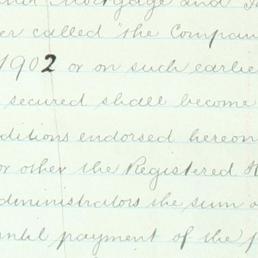 Mortgage and
er called "the Compan
1902 or on such earlie
secured shall become
ditions endorsed hereon
or other the Registered H
dministrators the sum o
payment of the f